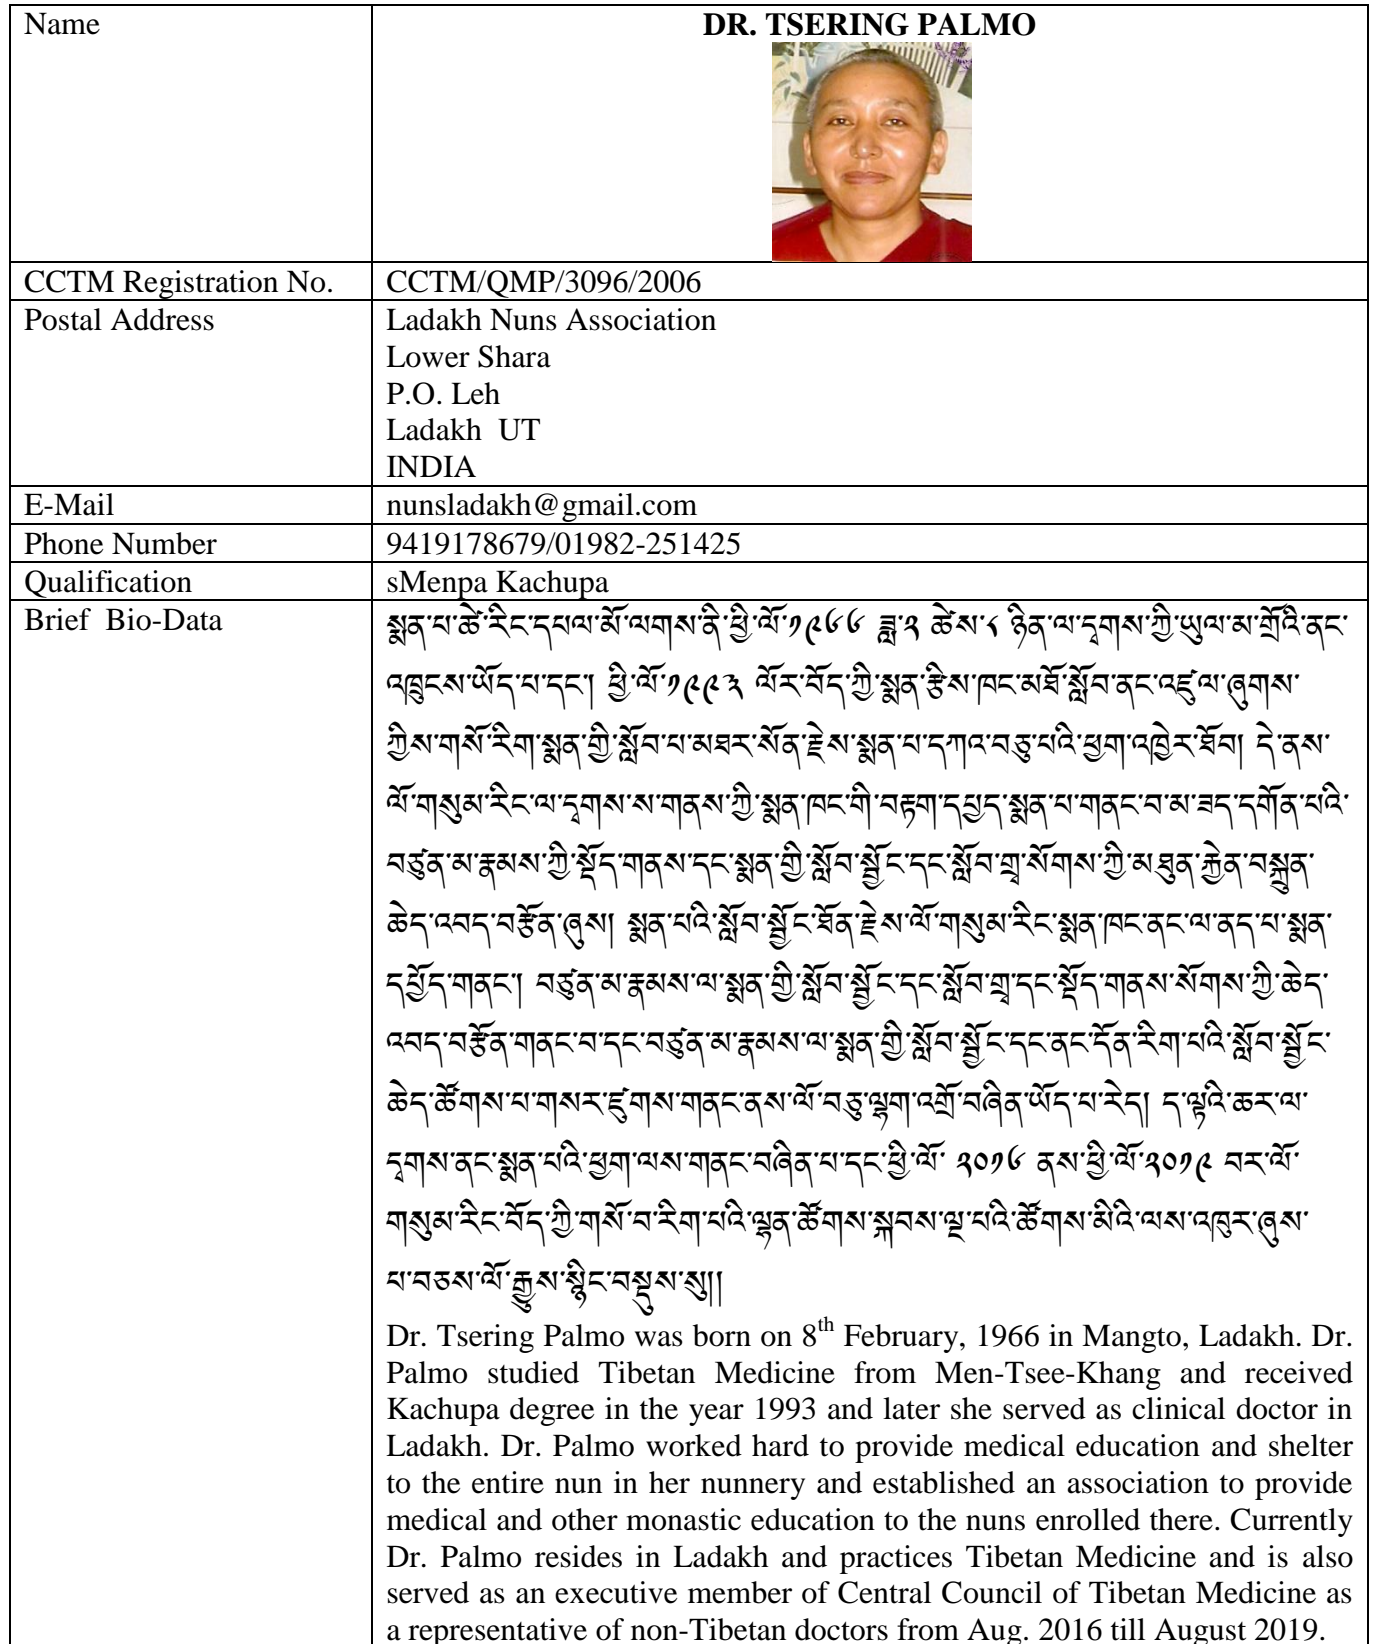 Name
DR. TSERING PALMO
CCTM Registration No.
CCTM/QMP/3096/2006
Postal Address
Ladakh Nuns Association
Lower Shara
P.O. Leh
Ladakh  UT
INDIA
E-Mail
nunsladakh@gmail.com
Phone Number
9419178679/01982-251425
Qualification
sMenpa Kachupa
Brief  Bio-Data
སྨན་པ་ཚེ་རིང་དཔལ་མོ་ལགས་ནི་ཕྱི་ལོ་༡༩༦༦ ཟླ་༢ ཚེས་༨ ཉིན་ལ་དྭགས་ཀྱི་ཡུལ་མ་གྲོའི་ནང་
འཁྲུངས་ཡོད་པ་དང་། ཕྱི་ལོ་༡༩༩༣ ལོར་བོད་ཀྱི་སྨན་རྩིས་ཁང་མཐོ་སློབ་ནང་འཛུལ་ཞུགས་
ཀྱིས་གསོ་རིག་སྨན་གྱི་སློབ་པ་མཐར་སོན་རྗེས་སྨན་པ་དཀའ་བཅུ་པའི་ཕྱག་འཁྱེར་ཐོབ། དེ་ནས་
ལོ་གསུམ་རིང་ལ་དྭགས་ས་གནས་ཀྱི་སྨན་ཁང་གི་བརྟག་དཔྱད་སྨན་པ་གནང་བ་མ་ཟད་དགོན་པའི་
བཙུན་མ་རྣམས་ཀྱི་སྡོད་གནས་དང་སྨན་གྱི་སློབ་སྦྱོང་དང་སློབ་གྲྭ་སོགས་ཀྱི་མཐུན་རྐྱེན་བསྐྲུན་
ཆེད་འབད་བརྩོན་ཞུས། སྨན་པའི་སློབ་སྦྱོང་ཐོན་རྗེས་ལོ་གསུམ་རིང་སྨན་ཁང་ནང་ལ་ནད་པ་སྨན་
དཔྱོད་གནང་། བཙུན་མ་རྣམས་ལ་སྨན་གྱི་སློབ་སྦྱོང་དང་སློབ་གྲྭ་དང་སྡོད་གནས་སོགས་ཀྱི་ཆེད་
འབད་བརྩོན་གནང་བ་དང་བཙུན་མ་རྣམས་ལ་སྨན་གྱི་སློབ་སྦྱོང་དང་ནང་དོན་རིག་པའི་སློབ་སྦྱོང་
ཆེད་ཚོགས་པ་གསར་འཛུགས་གནང་ནས་ལོ་བཅུ་ལྷག་འགྲོ་བཞིན་ཡོད་པ་རེད། ད་ལྟའི་ཆར་ལ་
དྭགས་ནང་སྨན་པའི་ཕྱག་ལས་གནང་བཞིན་པ་དང་ཕྱི་ལོ་ ༢༠༡༦ ནས་ཕྱི་ལོ་༢༠༡༩ བར་ལོ་
གསུམ་རིང་བོད་ཀྱི་གསོ་བ་རིག་པའི་ལྷན་ཚོགས་སྐབས་ལྔ་པའི་ཚོགས་མིའི་ལས་འཁུར་ཞུས་
པ་བཅས་ལོ་རྒྱུས་སྙིང་བསྡུས་སུ།།
Dr. Tsering Palmo was born on 8th February, 1966 in Mangto, Ladakh. Dr.
Palmo studied Tibetan Medicine from Men-Tsee-Khang and received
Kachupa degree in the year 1993 and later she served as clinical doctor in
Ladakh. Dr. Palmo worked hard to provide medical education and shelter
to the entire nun in her nunnery and established an association to provide
medical and other monastic education to the nuns enrolled there. Currently
Dr. Palmo resides in Ladakh and practices Tibetan Medicine and is also
served as an executive member of Central Council of Tibetan Medicine as
a representative of non-Tibetan doctors from Aug. 2016 till August 2019.